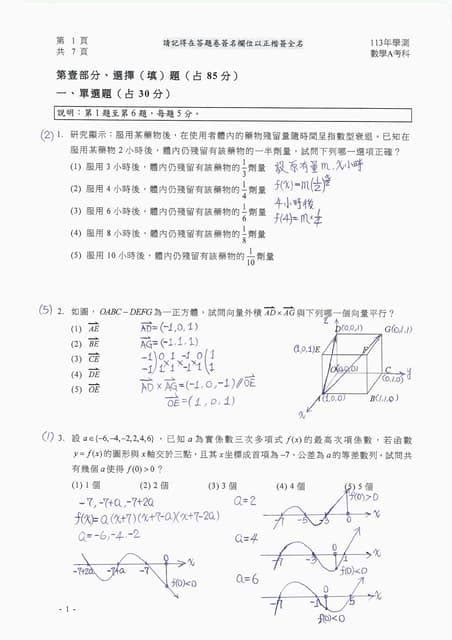 第 1 頁
共 7 頁
請記得在答題卷簽名欄位以正楷簽全名
113年學測
數學A考科
第壹部分、選擇（填）題（占 85 分）
一、單選題（占 30 分）
說明：第 1 題至第 6 題，每題 5 分。
(2) 1. 研究顯示：服用某藥物後，在使用者體內的藥物殘留量隨時間呈指數型衰退。已知在
服用某藥物 2 小時後，體內仍殘留有該藥物的一半劑量，試問下列哪一選項正確？
(1) 服用 3 小時後，體內仍殘留有該藥物的 1/3 劑量 設原有量m, x小時
(2) 服用 4 小時後，體內仍殘留有該藥物的 1/4 劑量 f(x)=m(1/2)^(x/2)
(3) 服用 6 小時後，體內仍殘留有該藥物的 1/6 劑量 4小時後
(4) 服用 8 小時後，體內仍殘留有該藥物的 1/8 劑量 f(4)=m×1/4
(5) 服用 10 小時後，體內仍殘留有該藥物的 1/10 劑量
(5) 2. 如圖，OABC－DEFG 為一正方體，試問向量外積 AD×AG 與下列哪一個向量平行？
(1) AE AD=(-1,0,1)
(2) BE AG=(-1,1,1)
(3) CE -1 0 1 -1 0 1
(4) DE -1 1 1 -1 1 1
(5) OE AD×AG=(-1,0,-1)∥OE
OE=(1,0,1)
z
D(0,0,1)
G(0,1,1)
(1,0,1)E
F
O(0,0,0)
C
y
(0,1,0)
A(1,0,0)
B(1,1,0)
x
(1) 3. 設 a∈{-6,-4,-2,2,4,6}，已知 a 為實係數三次多項式 f(x) 的最高次項係數，若函數
y=f(x) 的圖形與 x 軸交於三點，且其 x 坐標成首項為 -7、公差為 a 的等差數列。試問共
有幾個 a 使得 f(0)>0？
(1) 1 個 (2) 2 個 (3) 3 個 (4) 4 個 (5) 5 個
-7, -7+a, -7+2a
f(x)=a(x+7)(x+7-a)(x+7-2a)
a=-6,-4,-2
-7+2a -7+a -7 0 x
f(0)<0
a=2
f(0)>0
-7 -5 -3 0 x
a=4
-7 -3 0 1 x
f(0)<0
a=6
-7 -1 0 5 x
f(0)<0
- 1 -